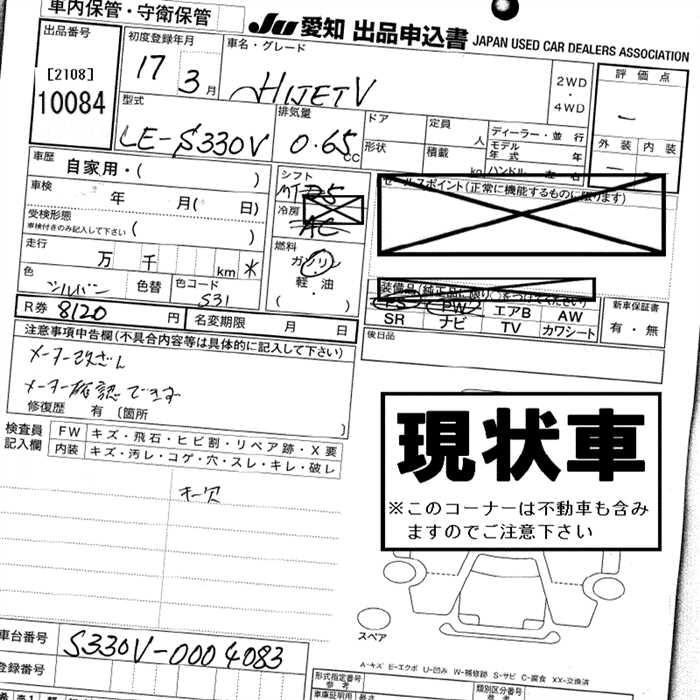 車内保管・守衛保管
JU 愛知 出品申込書 JAPAN USED CAR DEALERS ASSOCIATION
出品番号
[2108]
10084
初度登録年月
17 3月
車名・グレード
HIJET V
2WD
・
4WD
評価点
外装 内装
型式
LE-S330V
排気量
0.65
cc
ドア
形状
定員 人
積載 kg
ディーラー・並行
モデル年式 年
ハンドル 左 右
車歴 自家用・( )
車検 年 月( 日)
受検形態
車検付きのみ記入して下さい ( )
走行 万 千 km *
色 シルバン
色替
色コード S31
シフト
冷房 AC
燃料
ガソリン
軽・油
( )
セールスポイント(正常に機能するものに限ります)
PS PW エアB AW
SR ナビ TV カワシート
新車保証書
有・無
後日品
R券 8120 円
名変期限 月 日
注意事項申告欄(不具合内容等は具体的に記入して下さい)
メーター改ざん
メーター確認できず
修復歴 有 〔箇所 〕
検査員記入欄
FW キズ・飛石・ヒビ割・リペア跡・X要
内装 キズ・汚レ・コゲ・穴・スレ・キレ・破レ
キー欠
現状車
※このコーナーは不動車も含み
ますのでご注意下さい
スペア
A-キズ E-エクボ U-凹み W-補修跡 S-サビ C-腐食 XX-交換済
車台番号 S330V-0004083
登録番号
形式指定番号
参考
類別区分番号
参考